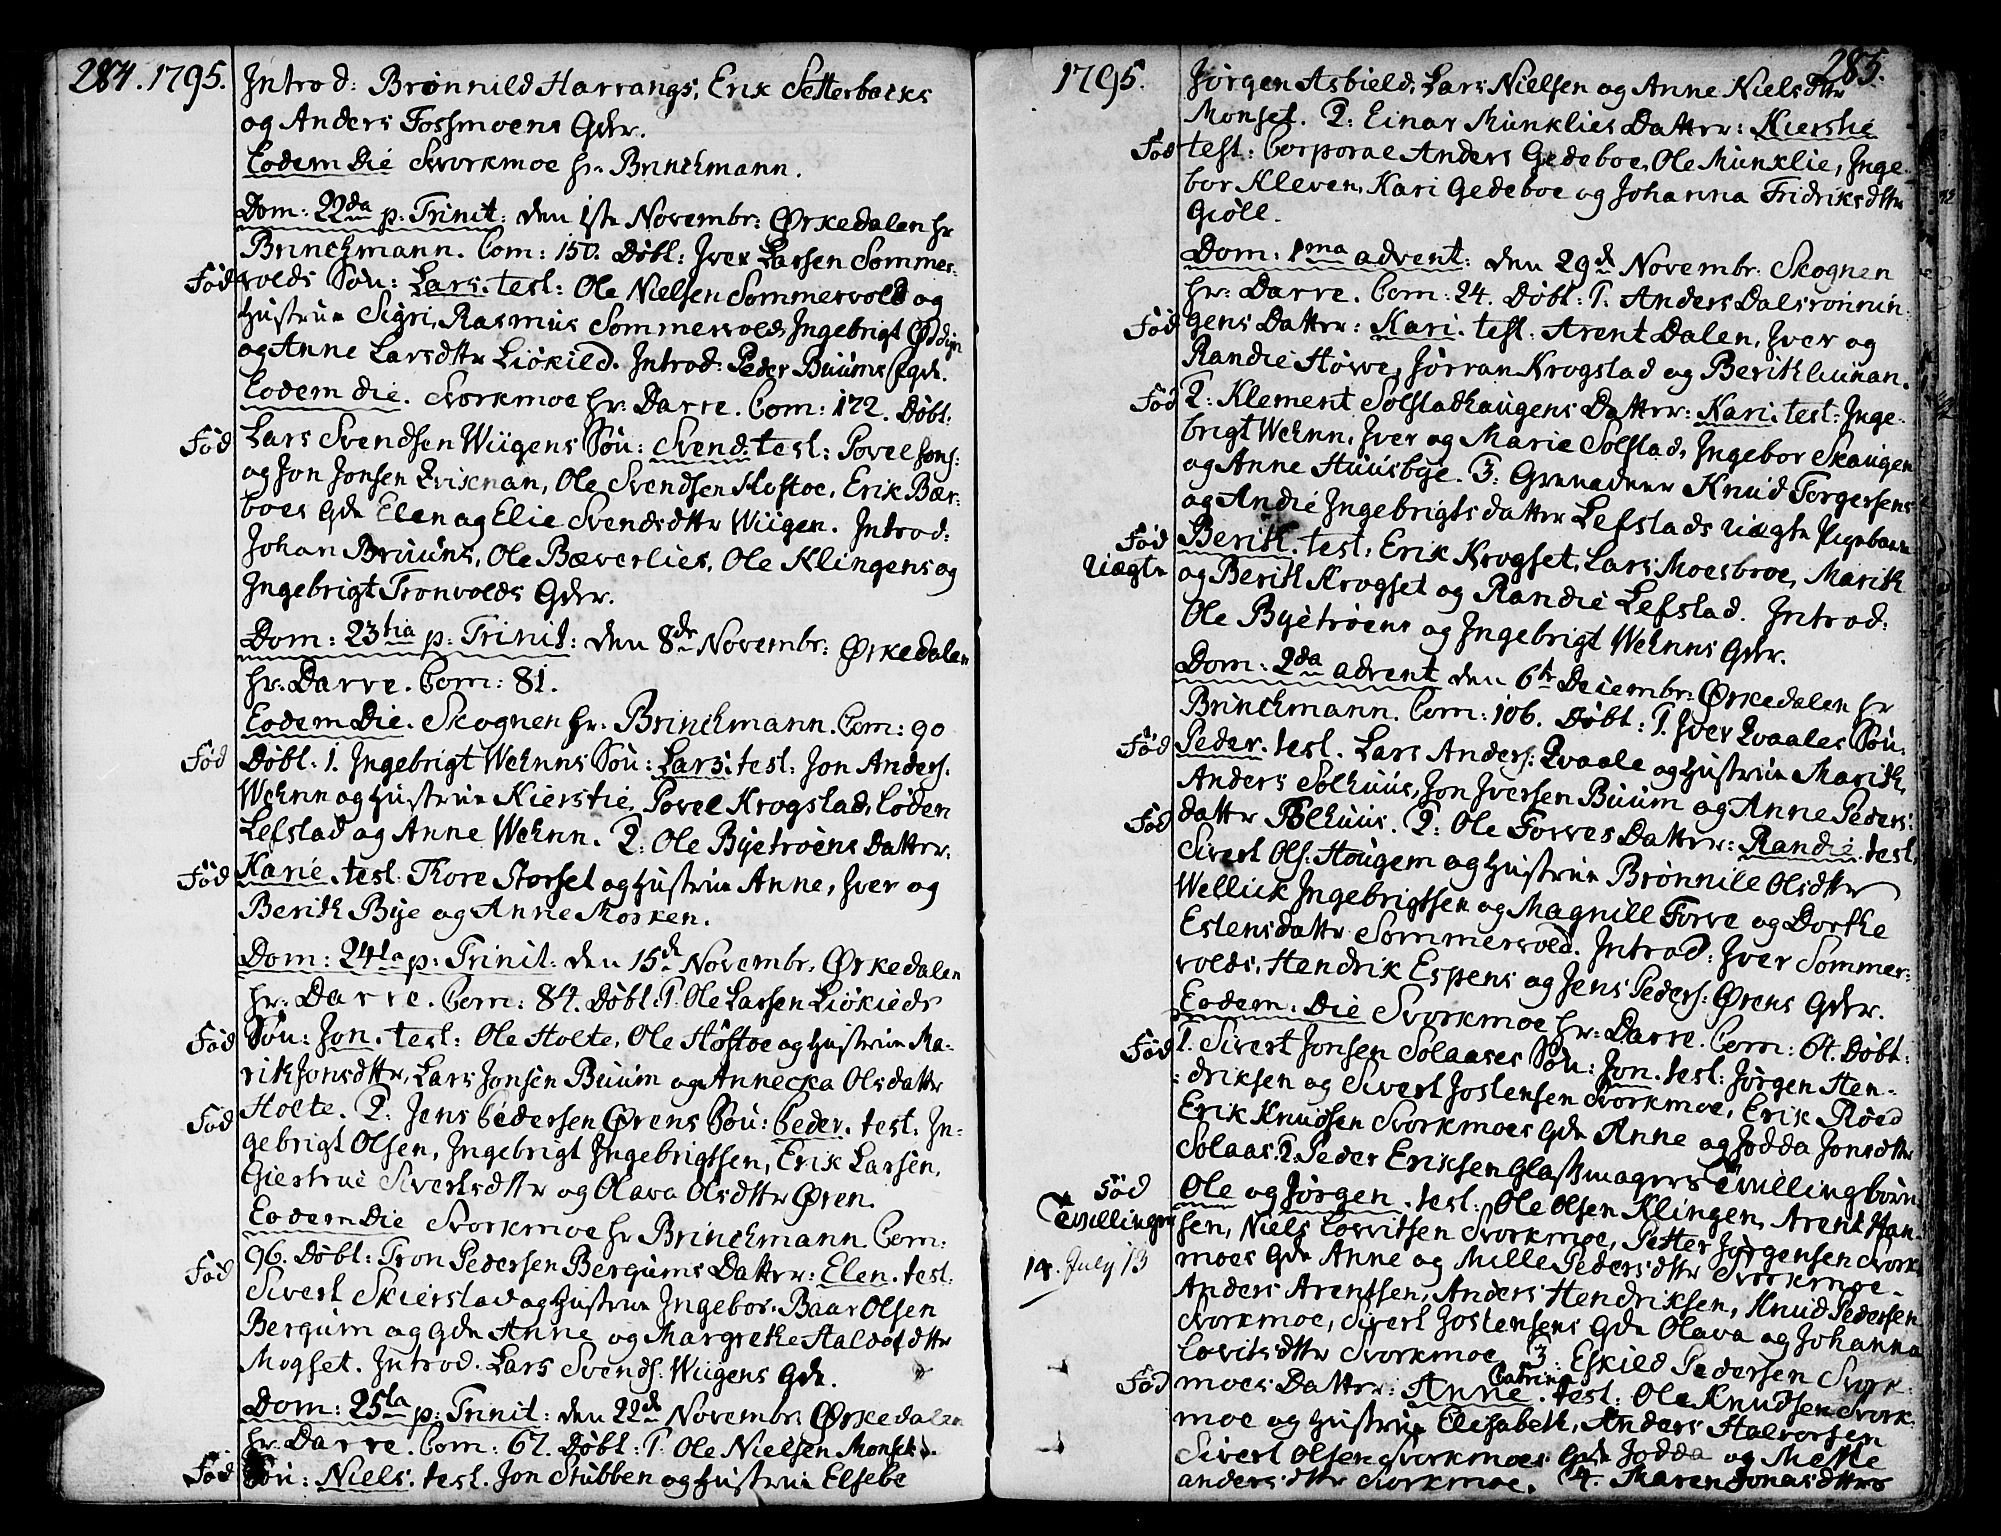 284. 1795.
Introd: Brønnild Harrangs, Erik Setterbacks
og Anders Fossmoens Qdr.
Eodem Die Svorkmoe hr. Brinchmann.
Dom: 22da p: Trinit: den 1ste Novembr: Ørkedalen hr
Brinchmann. Com: 150. Døbl: Jver Larsen Sommer-
Fød volds Søn: Lars. test: Ole Nielsen Sommervold og
Hustrue Sigri, Rasmus Sommervold, Ingebrigt
og Anne Larsdttr Liøkild. Introd: Peder Buums Qde.
Eodem die. Svorkmoe hr: Darre. Com: 172. Døbt:
Fød Lars Svendsen Wiigens Søn: Svend. test: Povel Jons:
og Jon Jonsen Qvisnan, Ole Svendsen Hostoe, Erik Bær-
boes Qde Elen og Elie Svendsdttr Wiigen. Introd:
Johan Bruuns, Ole Bæverlies, Ole Klingens og
Ingebrigt Tronvolds Qdr.
Dom: 23tia p: Trinit: den 8de Novembr: Ørkedalen
hr: Darre. Com: 81.
Eodem Die. Skognen hr. Brinchmann. Com: 90
Fød Døbl: 1. Ingebrigt Wehnns Søn: Lars. test: Jon Anders:
Wehnn og Hustrue Kierstie, Povel Krogstad, Loden
Lefstad og Anne Wehnn. 2: Ole Byetrøens Datter:
Fød Karie. test: Thore Storset og Hustrue Anne, Jver og
Berith Bye og Anne Mosken.
Dom: 24ta p: Trinit: den 15de Novembr. Ørkedalen
hr: Darre. Com: 84. Døbl: 1. Ole Larsen Liøkilds
Fød Søn: Jon. test: Ole Holte, Ole Høstoe og Hustrue Ma-
rith Jonsdttr, Lars Jonsen Buum og Annecka Olsdattr
Fød Holte. 2: Jens Pedersen Ørens Søn: Peder. test. In-
gebrigt Olsen, Ingebrigt Ingebrigtsen, Erik Larsen,
Giertrue Sivertsdttr og Olava Olsdttr Øren.
Eodem Die Svorkmoe hr Brinchmann. Com:
Fød 96. Døbl: Tron Pedersen Bergums Dattr: Elen. test:
Sivert Skierstad og Hustrue Ingebor, Baar Olsen
Bergum og Qde Anne og Margrethe Haldosdttr
Mogset. Introd. Lars Svends: Wiigens Qde.
Dom: 25ta p: Trinit: den 22de Novembr: Ørkedalen
hr: Darre. Com: 67. Døbl: 1. Ole Nielsen Monsets
Fød Søn: Niels. test. Jon Stubben og Hustrue Elsebe
1795. 285.
Jørgen Asbield, Lars Nielsen og Anne Nielsdttr
Monset. 2: Einar Munklies Datter: Kierstie
Fød test: Corporal Anders Gedeboe, Ole Munklie, Inge-
bor Kleven, Kari Gedeboe og Johanna Fridriksdttr
Giøll.
Dom: 1ma advent: den 29de Novembr: Skognen
hr: Darre. Com: 24. Døbl: 1. Anders Dalsrønnin-
Fød gens Datter: Kari. test. Arent Dalen, Jver og
Randie Hovve, Jørran Krogstad og Berith
Fød 2: Klement Solstadhaugens Datter: Kari. test: Inge-
brigt Wehnn, Jver og Marie Solstad, Ingebor Skaugen
og Anne Huusbye. 3: Grenadeer Knud Torgersens
og Andie Ingebrigtsdatter Lefstads uægte Pigebarn
Fød Berith. test: Erik Krogset, Lars Moesbroe, Marith
uægte og Berith Krogset og Randie Lefstad. Introd:
Ole Byetrøens og Ingebrigt Wehnns Qdr.
Dom: 2da advent den 6te Decembr: Ørkedalen hr
Brinchmann. Com: 106. Døbl: 1. Jver Qvaales Søn:
Fød Peder. test. Lars Anders: Qvaale og Hustrue Marith,
Anders Solhuus, Jon Jversen Buum og Anne Peders:
Fød dattr Solhuus. 2: Ole Forves Datter: Randie. test.
Sivert Ols: Hougem og Hustrue Brønnile Olsdttr
Wellick Ingebrigtsen og Magnill Forve og Dorthe
Estensdattr Sommervold. Introd: Jver Sommer:
volds, Hendrik Espens og Jens Peders: Ørens Qdr.
Eodem: Die Svorkmoe hr: Darre. Com: 64. Døbt:
Fød 1. Sivert Jonsen Solaases Søn: Jon. test: Jørgen Hen-
driksen og Sivert Jostensen Svorkmoe, Erik Røed
Erik Knudsen Svorkmoes Qde Anne og Jodda Jonsdttr
Solaas. 2. Peder Eriksen Glasmagers Tvillingbørn
Fød Ole og Jørgen. test: Ole Olsen Klingen, Arent Han-
Tvillinger sen, Niels Lovvitsen Svorkmoe, Petter Jørgensen Svork-
14. July 13 moes Qde Anne og Mille Pedersdttr Svorkmoe
Anders Arentsen, Anders Hendriksen, Knud Pedersen
Svorkmoe, Sivert Jostensens Qde Olava og Johanna
Lovitsdttr Svorkmoe. 3: Eskild Pedersen Svork-
Fød moes Datter: Anne Catrina. test: Ole Knudsen Svork-
moe og Hustrue Elisabeth, Anders Halvorsen
Sivert Olsen Svorkmoes Qde Jodda og Mette
andersdttr Svorkmoe. 4. Maren Jonasdttrs